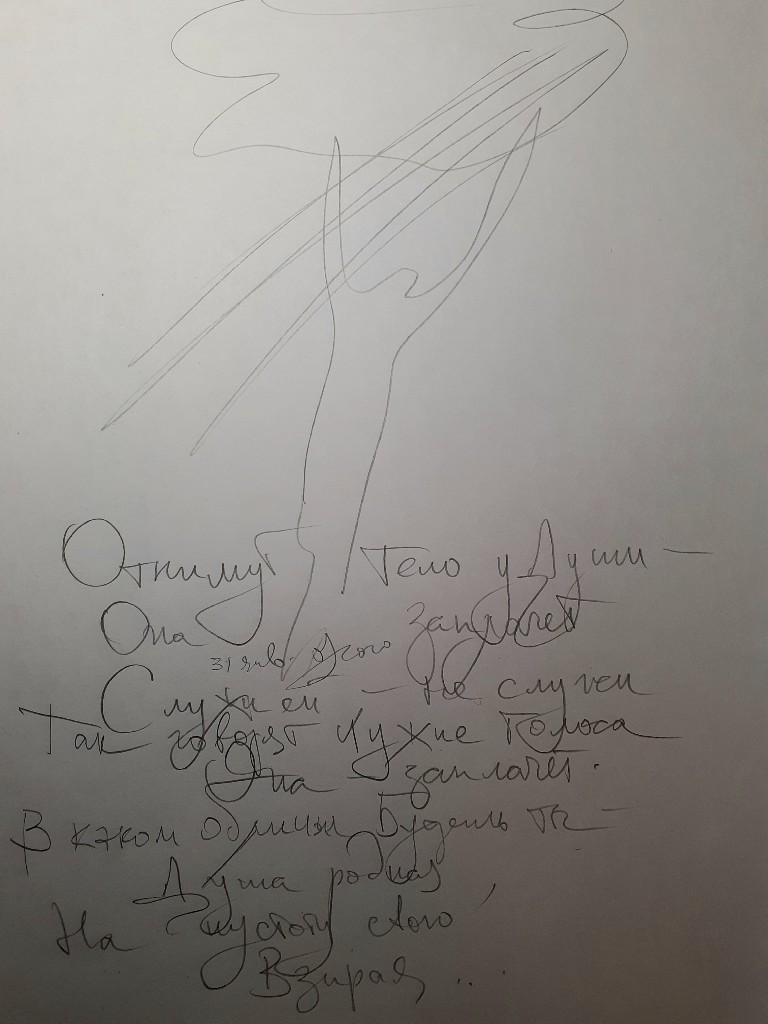 Отнимут Тело у Души —
Она заплачет
31 янв.
Служи ей — не случ
Так говорят Чужие Голоса
Она заплачет.
В каком обличьи Будешь ты —
Душа родная,
На пустоту свою
Взирая...